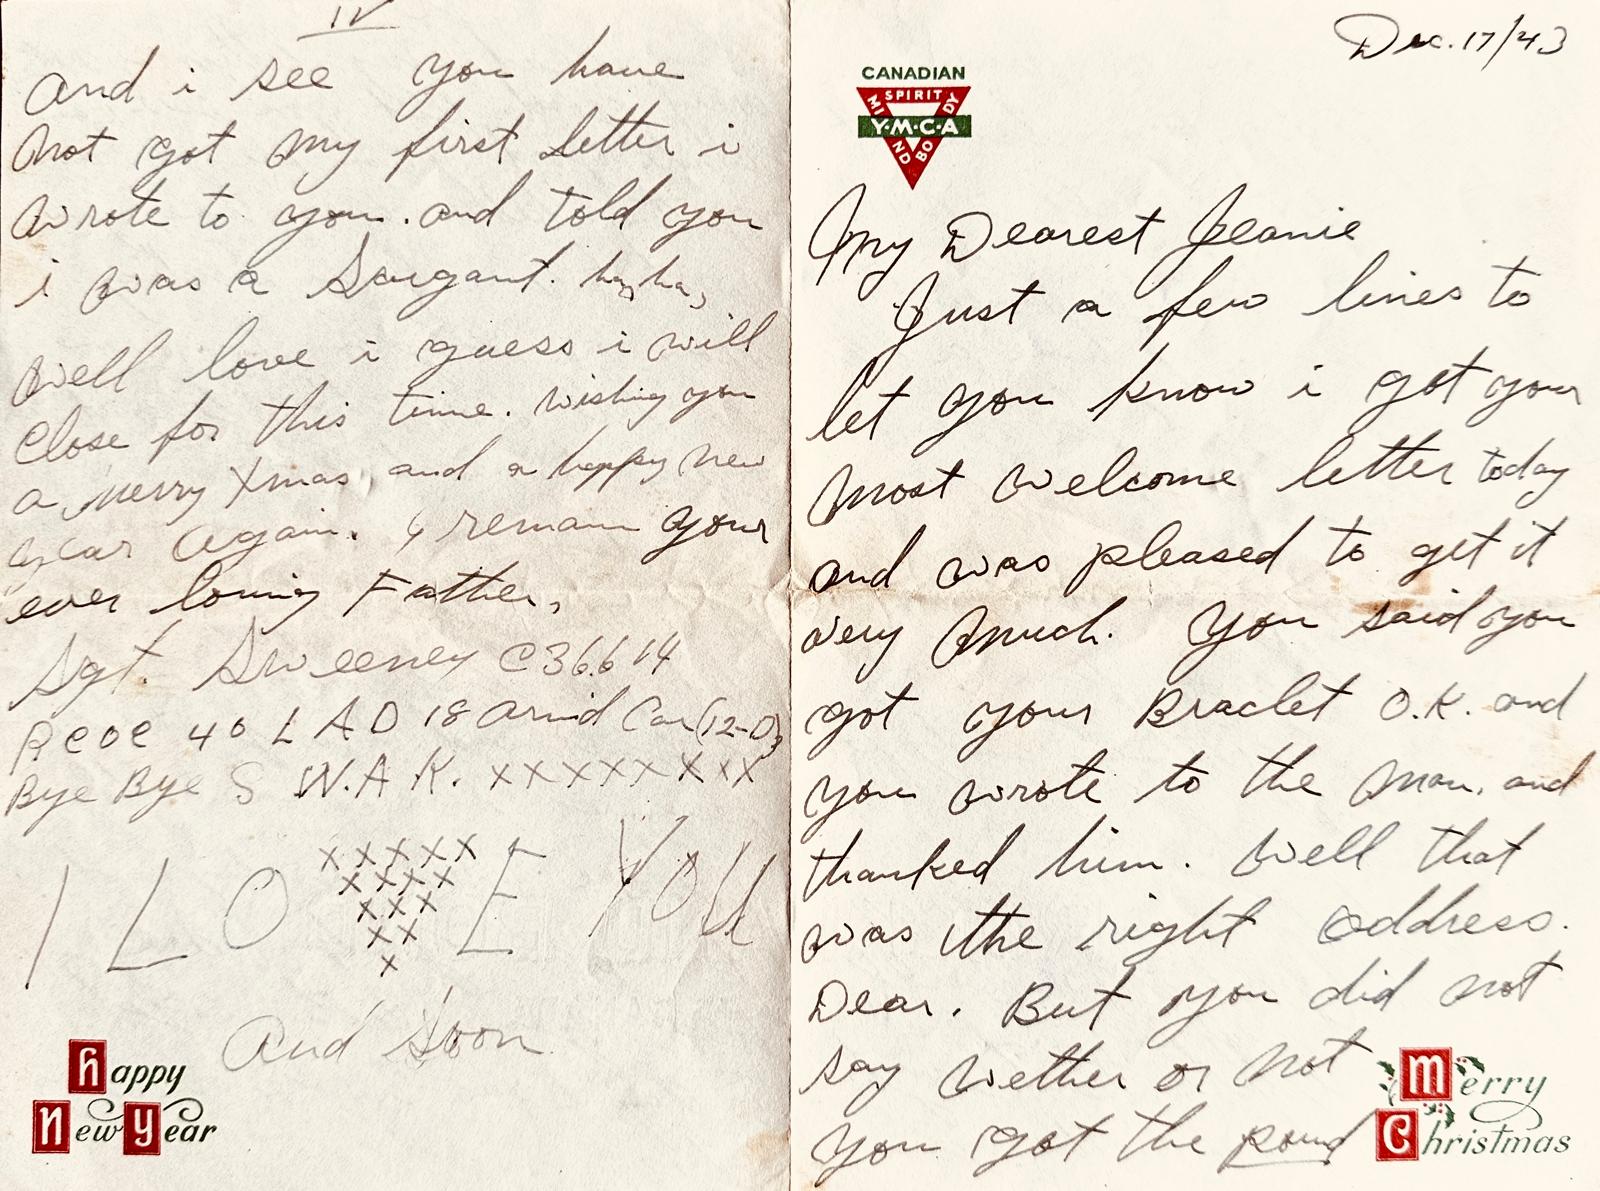 IV
and i see you have
not got my first letter i
wrote to you. and told you
i was a Sargant. ha, ha,
well love i guess i will
close for this time. wishing you
a merry Xmas, and a happy new
year again. I remain your
ever loving Father,
Sgt. Sweeney C36614
RCOC 40 L A D 18 Armd Car (12-D)
Bye Bye S W.A.K. xxxxxxxxx
I LO E YOU
xxxxx
xxxx
xxx
xx
x
And Soon
Happy
New Year
Dec. 17/43
CANADIAN
SPIRIT
MIND
BODY
Y·M·C·A
My Dearest Jeanie
Just a few lines to
let you know i got your
most welcome letter today
and was pleased to get it
very much. You said you
got your Braclet O.K. and
you wrote to the man. and
thanked him. Well that
was the right address.
Dear. But you did not
say wether or not
you got the pound
Merry
Christmas